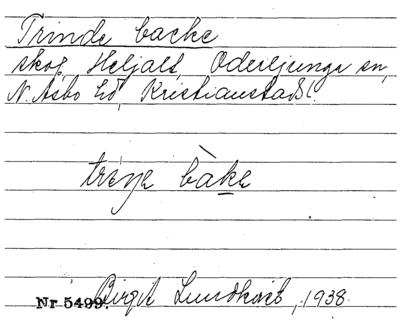 Trinde backe
skog, Heljalt, Oderljunga sn,
N. Åsbo hd, Kristianstads l.
trińe bàke
Nr 5499. Birgit Lundkvist, 1938.